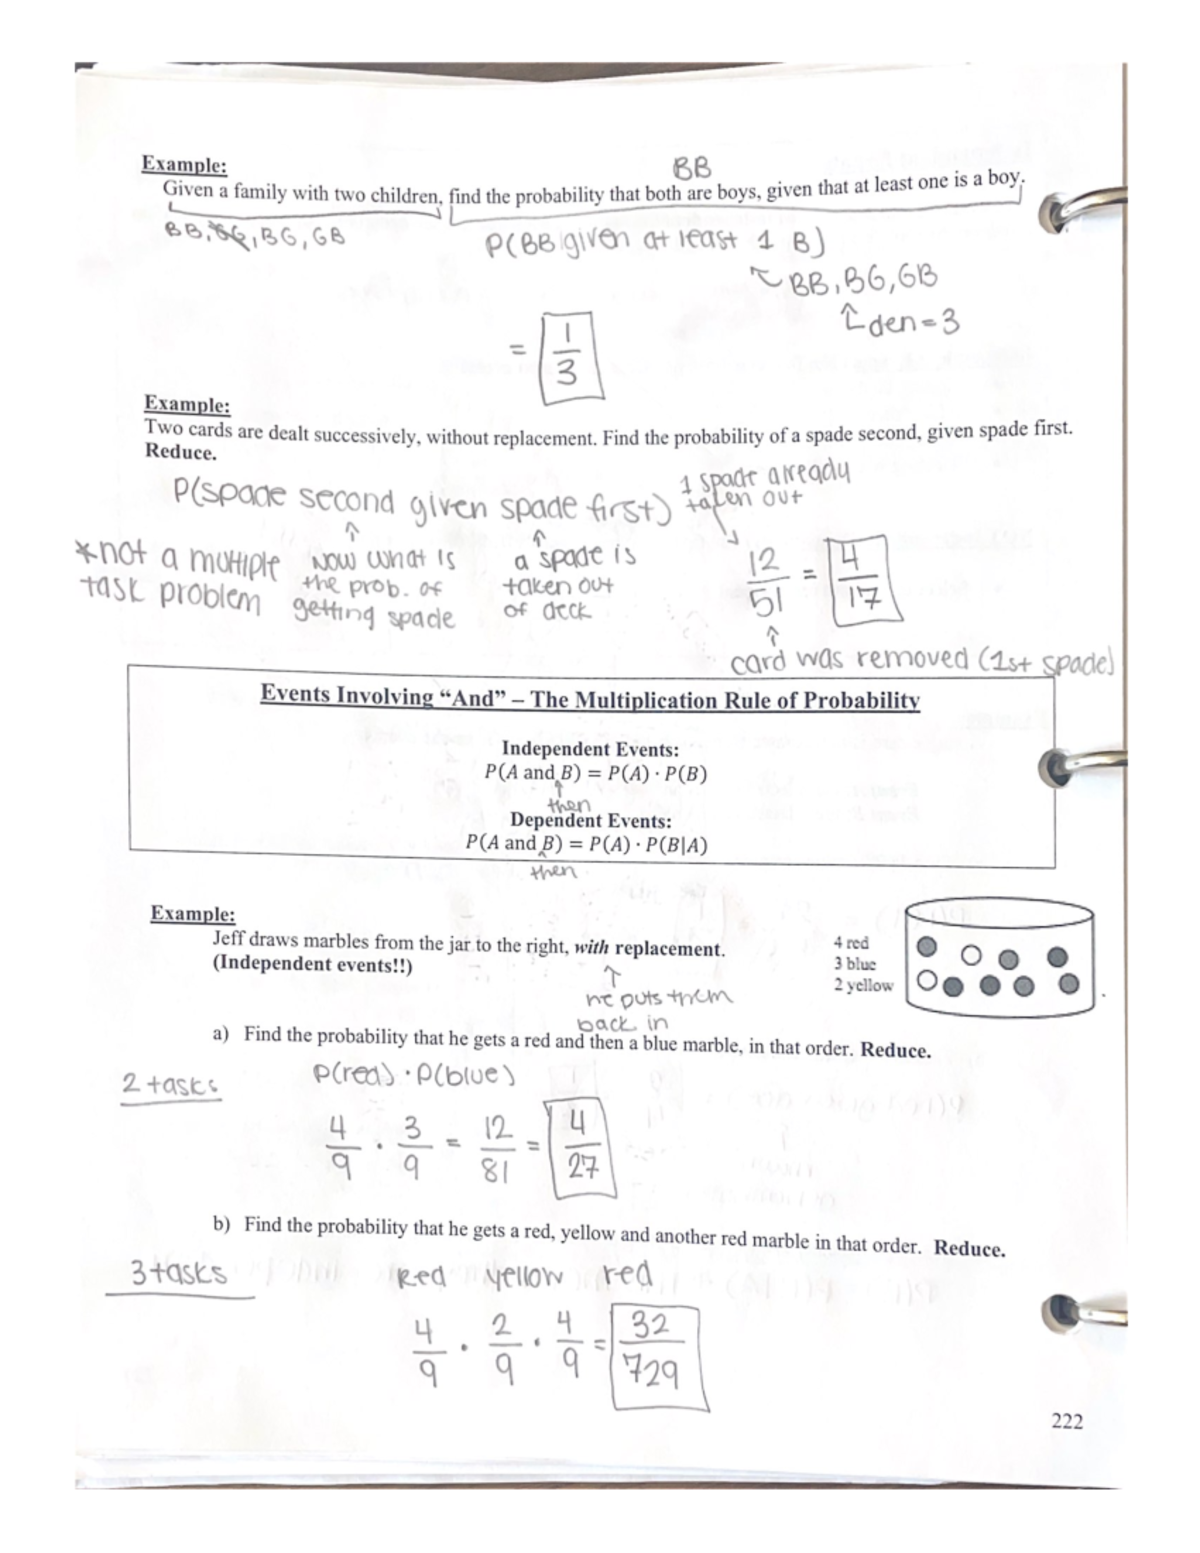 Example:
BB
Given a family with two children, find the probability that both are boys, given that at least one is a boy.
BB, GG, BG, GB
P(BB|given at least 1 B)
BB, BG, GB
den=3
= 1/3
Example:
Two cards are dealt successively, without replacement. Find the probability of a spade second, given spade first.
Reduce.
P(spade second given spade first)
1 spade already
taken out
*not a multiple
task problem
now what is
the prob. of
getting spade
a spade is
taken out
of deck
12/51 = 4/17
card was removed (1st spade)
Events Involving “And” – The Multiplication Rule of Probability
Independent Events:
P(A and B) = P(A) · P(B)
then
Dependent Events:
P(A and B) = P(A) · P(B|A)
then
Example:
Jeff draws marbles from the jar to the right, with replacement.
(Independent events!!)
4 red
3 blue
2 yellow
he puts them
back in
a) Find the probability that he gets a red and then a blue marble, in that order. Reduce.
2 tasks
P(red) · P(blue)
4/9 · 3/9 = 12/81 = 4/27
b) Find the probability that he gets a red, yellow and another red marble in that order. Reduce.
3 tasks
Red yellow red
4/9 · 2/9 · 4/9 = 32/729
222